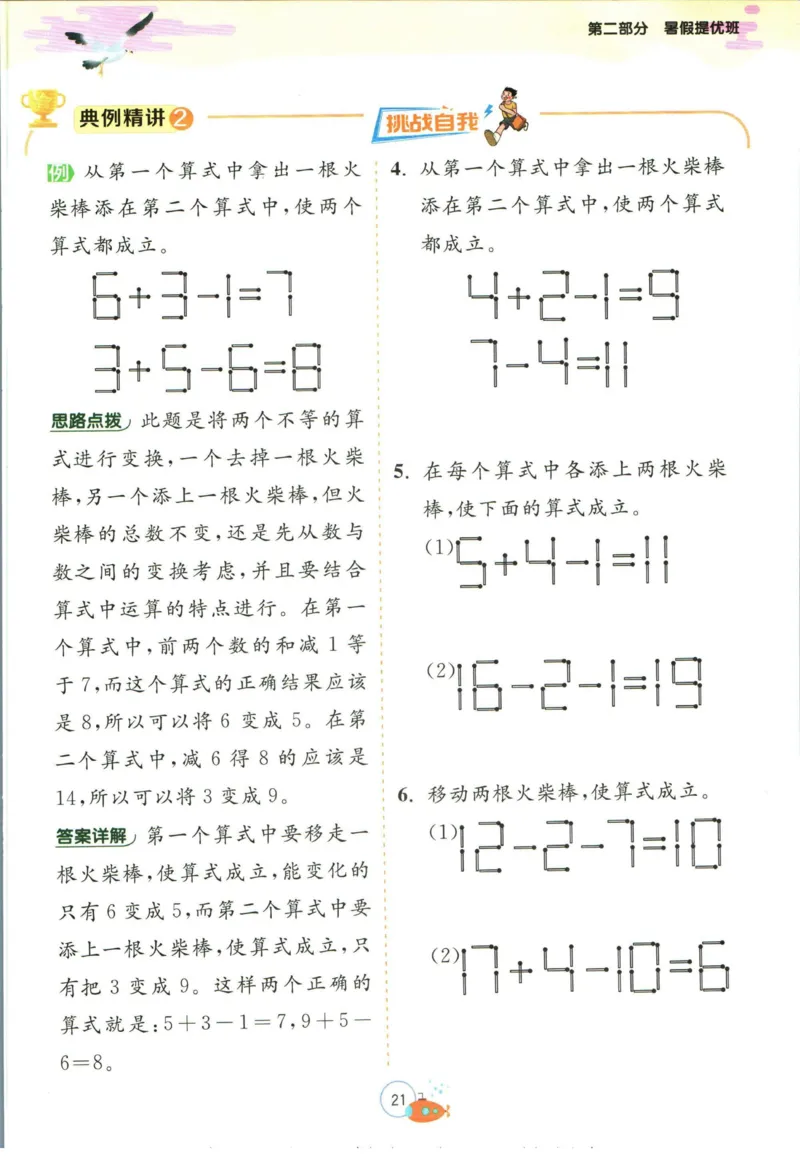 第二部分 暑假提优班
典例精讲2
例 从第一个算式中拿出一根火
柴棒添在第二个算式中,使两个
算式都成立。
6+3-1=7
3+5-6=8
思路点拨 此题是将两个不等的算
式进行变换,一个去掉一根火柴
棒,另一个添上一根火柴棒,但火
柴棒的总数不变,还是先从数与
数之间的变换考虑,并且要结合
算式中运算的特点进行。在第一
个算式中,前两个数的和减 1 等
于 7,而这个算式的正确结果应该
是 8,所以可以将 6 变成 5。在第
二个算式中,减 6 得 8 的应该是
14,所以可以将 3 变成 9。
答案详解 第一个算式中要移走一
根火柴棒,使算式成立,能变化的
只有 6 变成 5,而第二个算式中要
添上一根火柴棒,使算式成立,只
有把 3 变成 9。这样两个正确的
算式就是:5+3-1=7,9+5-
6=8。
挑战自我
4. 从第一个算式中拿出一根火柴棒
添在第二个算式中,使两个算式
都成立。
4+2-1=9
7-4=11
5. 在每个算式中各添上两根火柴
棒,使下面的算式成立。
(1)5+4-1=11
(2)16-2-1=19
6. 移动两根火柴棒,使算式成立。
(1)12-2-7=10
(2)17+4-10=6
21